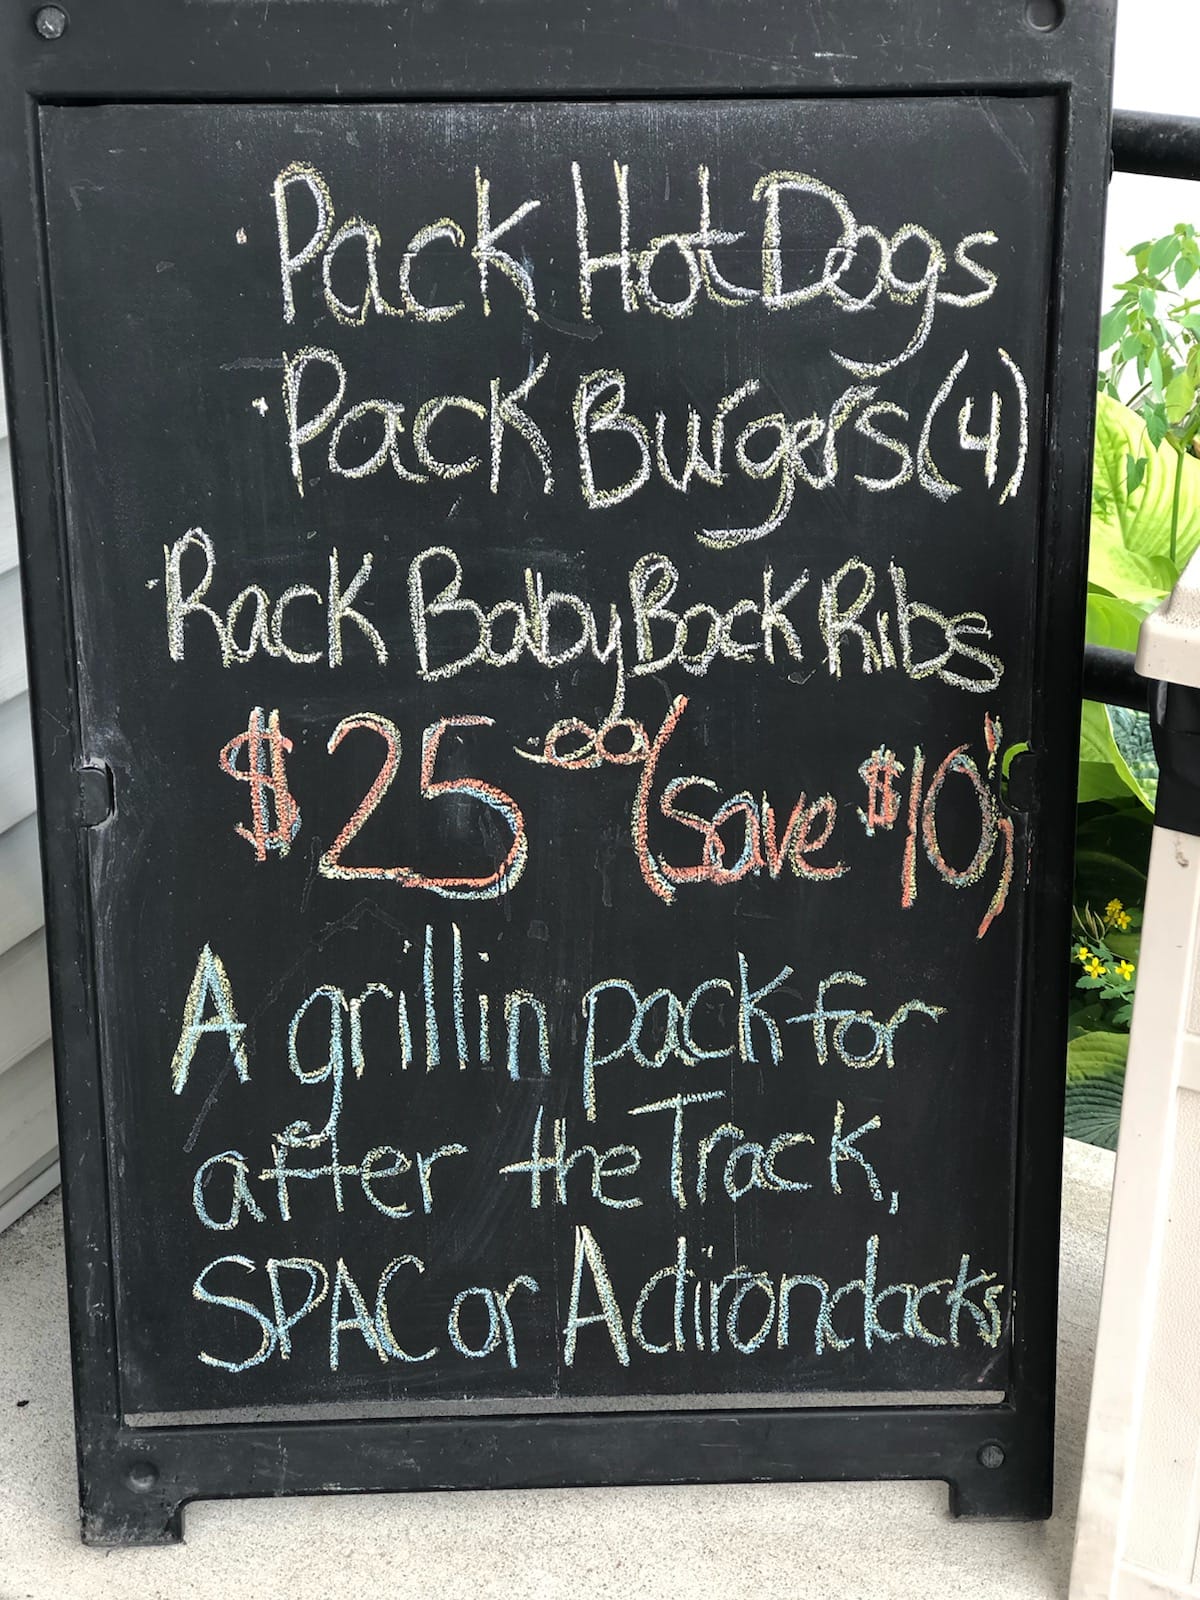 · Pack Hot Dogs
· Pack Burgers (4)
· Rack Baby Back Ribs
$25.00 (save $10)
A grillin pack for
after the Track,
SPAC or Adirondacks